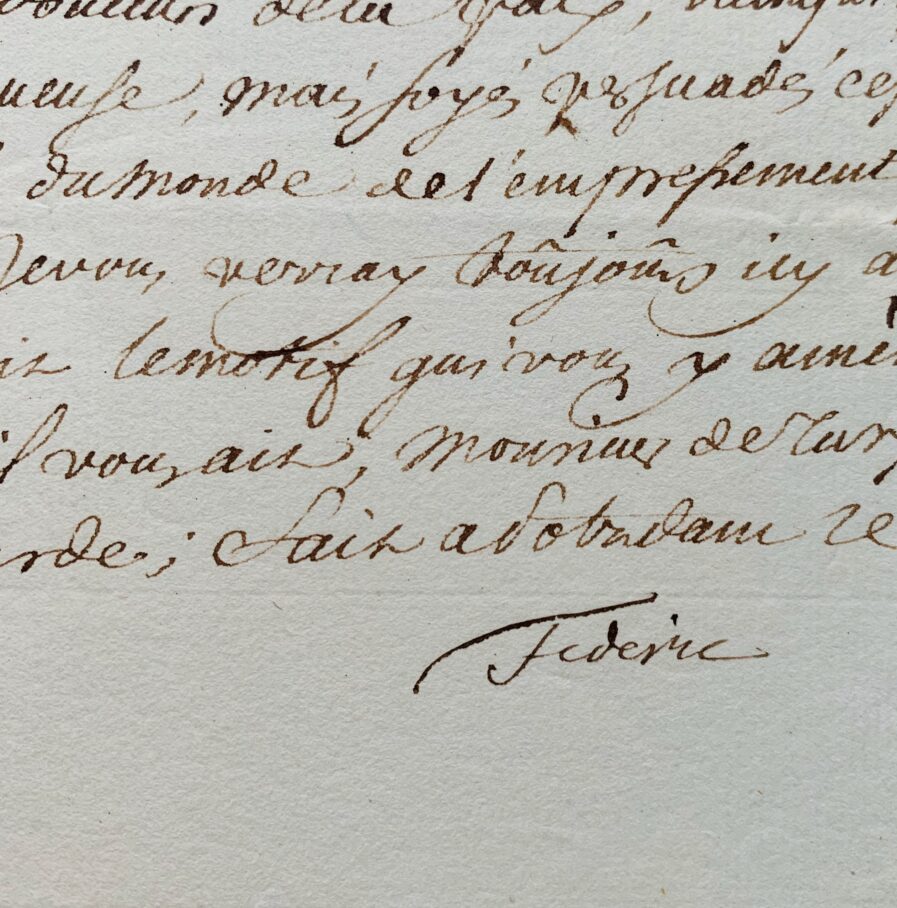 douceurs de la paix,
ueuse, mais soyés persuadés
du monde de l'empressement
Je vous verray toûjours icy
le motif qui vous y
vous ait, Monsieur de
arde; Fait a Potzdam le
Federic